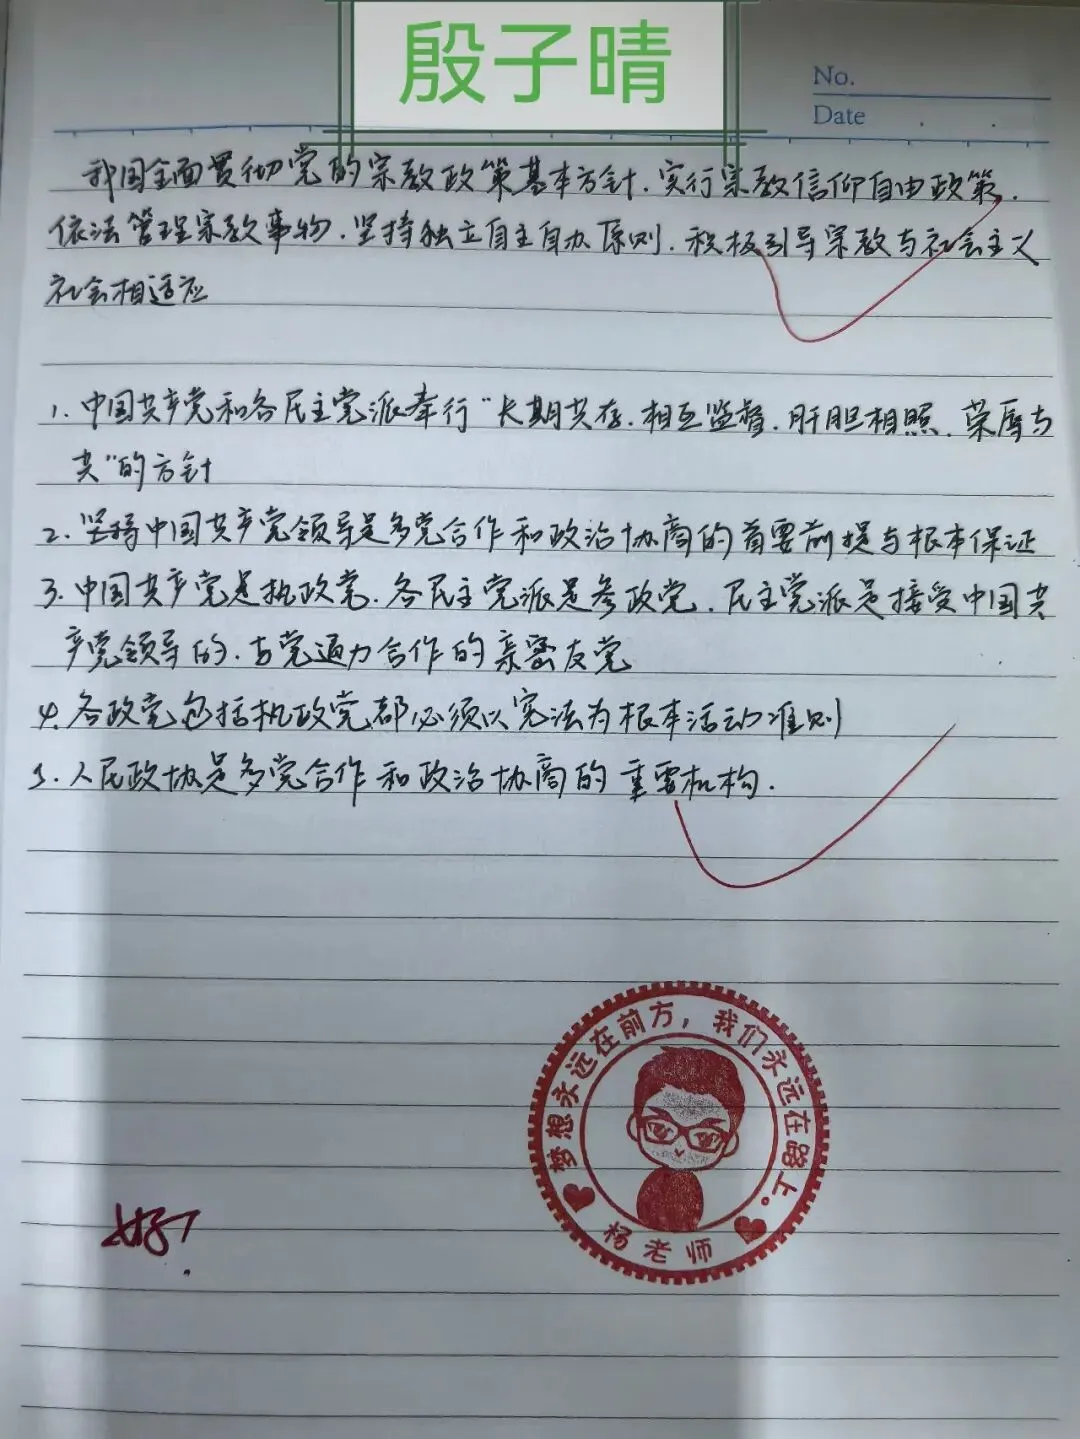 殷子晴
No.
Date
我国全面贯彻党的宗教政策基本方针.实行宗教信仰自由政策.
依法管理宗教事物.坚持独立自主自办原则.积极引导宗教与社会主义
社会相适应
1.中国共产党和各民主党派奉行"长期共存.相互监督.肝胆相照.荣辱与
共"的方针
2.坚持中国共产党领导是多党合作和政治协商的首要前提与根本保证
3.中国共产党是执政党.各民主党派是参政党.民主党派是接受中国共
产党领导的.与党通力合作的亲密友党
4.各政党包括执政党都必须以宪法为根本活动准则
5.人民政协是多党合作和政治协商的重要机构.
梦想永远在前方，我们永远在路上。
杨老师
好